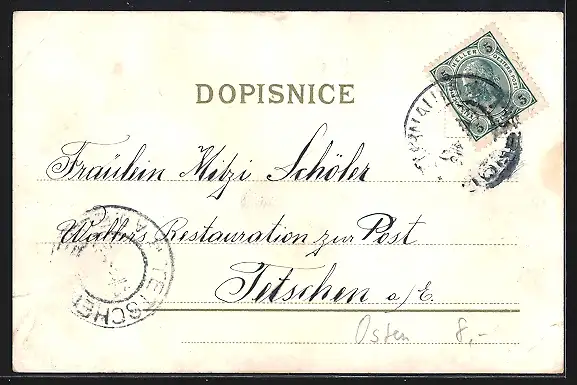 DOPISNICE
5 HELLER 5
Fräulein Mitzi Schöler
Walters Restauration zur Post
Tetschen a/E.
TETSCHEN
Osten 8,-